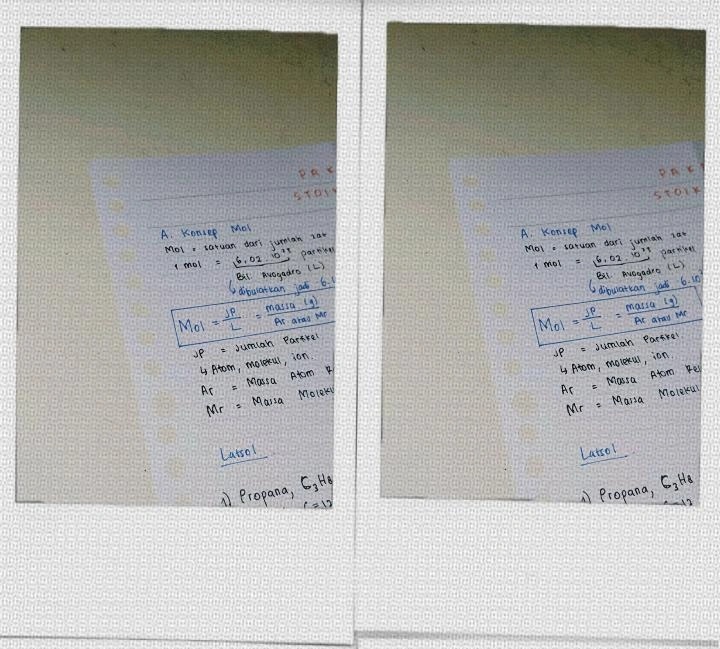 A. Konsep Mol
Mol = satuan dari jumlah zat
1 mol = 6,02 . 10²³ partikel
Bil. Avogadro (L)
dibulatkan jadi 6.
Mol = JP/L = massa (g)/Ar atau Mr
JP = Jumlah Partikel.
↳ Atom, molekul, ion.
Ar = Massa Atom
Mr = Massa Molekul
Latsol
1) Propana, C₃H₈
C=12
A. Konsep Mol
Mol = satuan dari jumlah zat
1 mol = 6,02 . 10²³ partikel
Bil. Avogadro (L)
dibulatkan jadi 6.10
Mol = JP/L = massa (g)/Ar atau Mr
JP = Jumlah Partikel.
↳ Atom, molekul, ion.
Ar = Massa Atom Rel
Mr = Massa Molekul
Latsol
1) Propana, C₃H₈
C=12